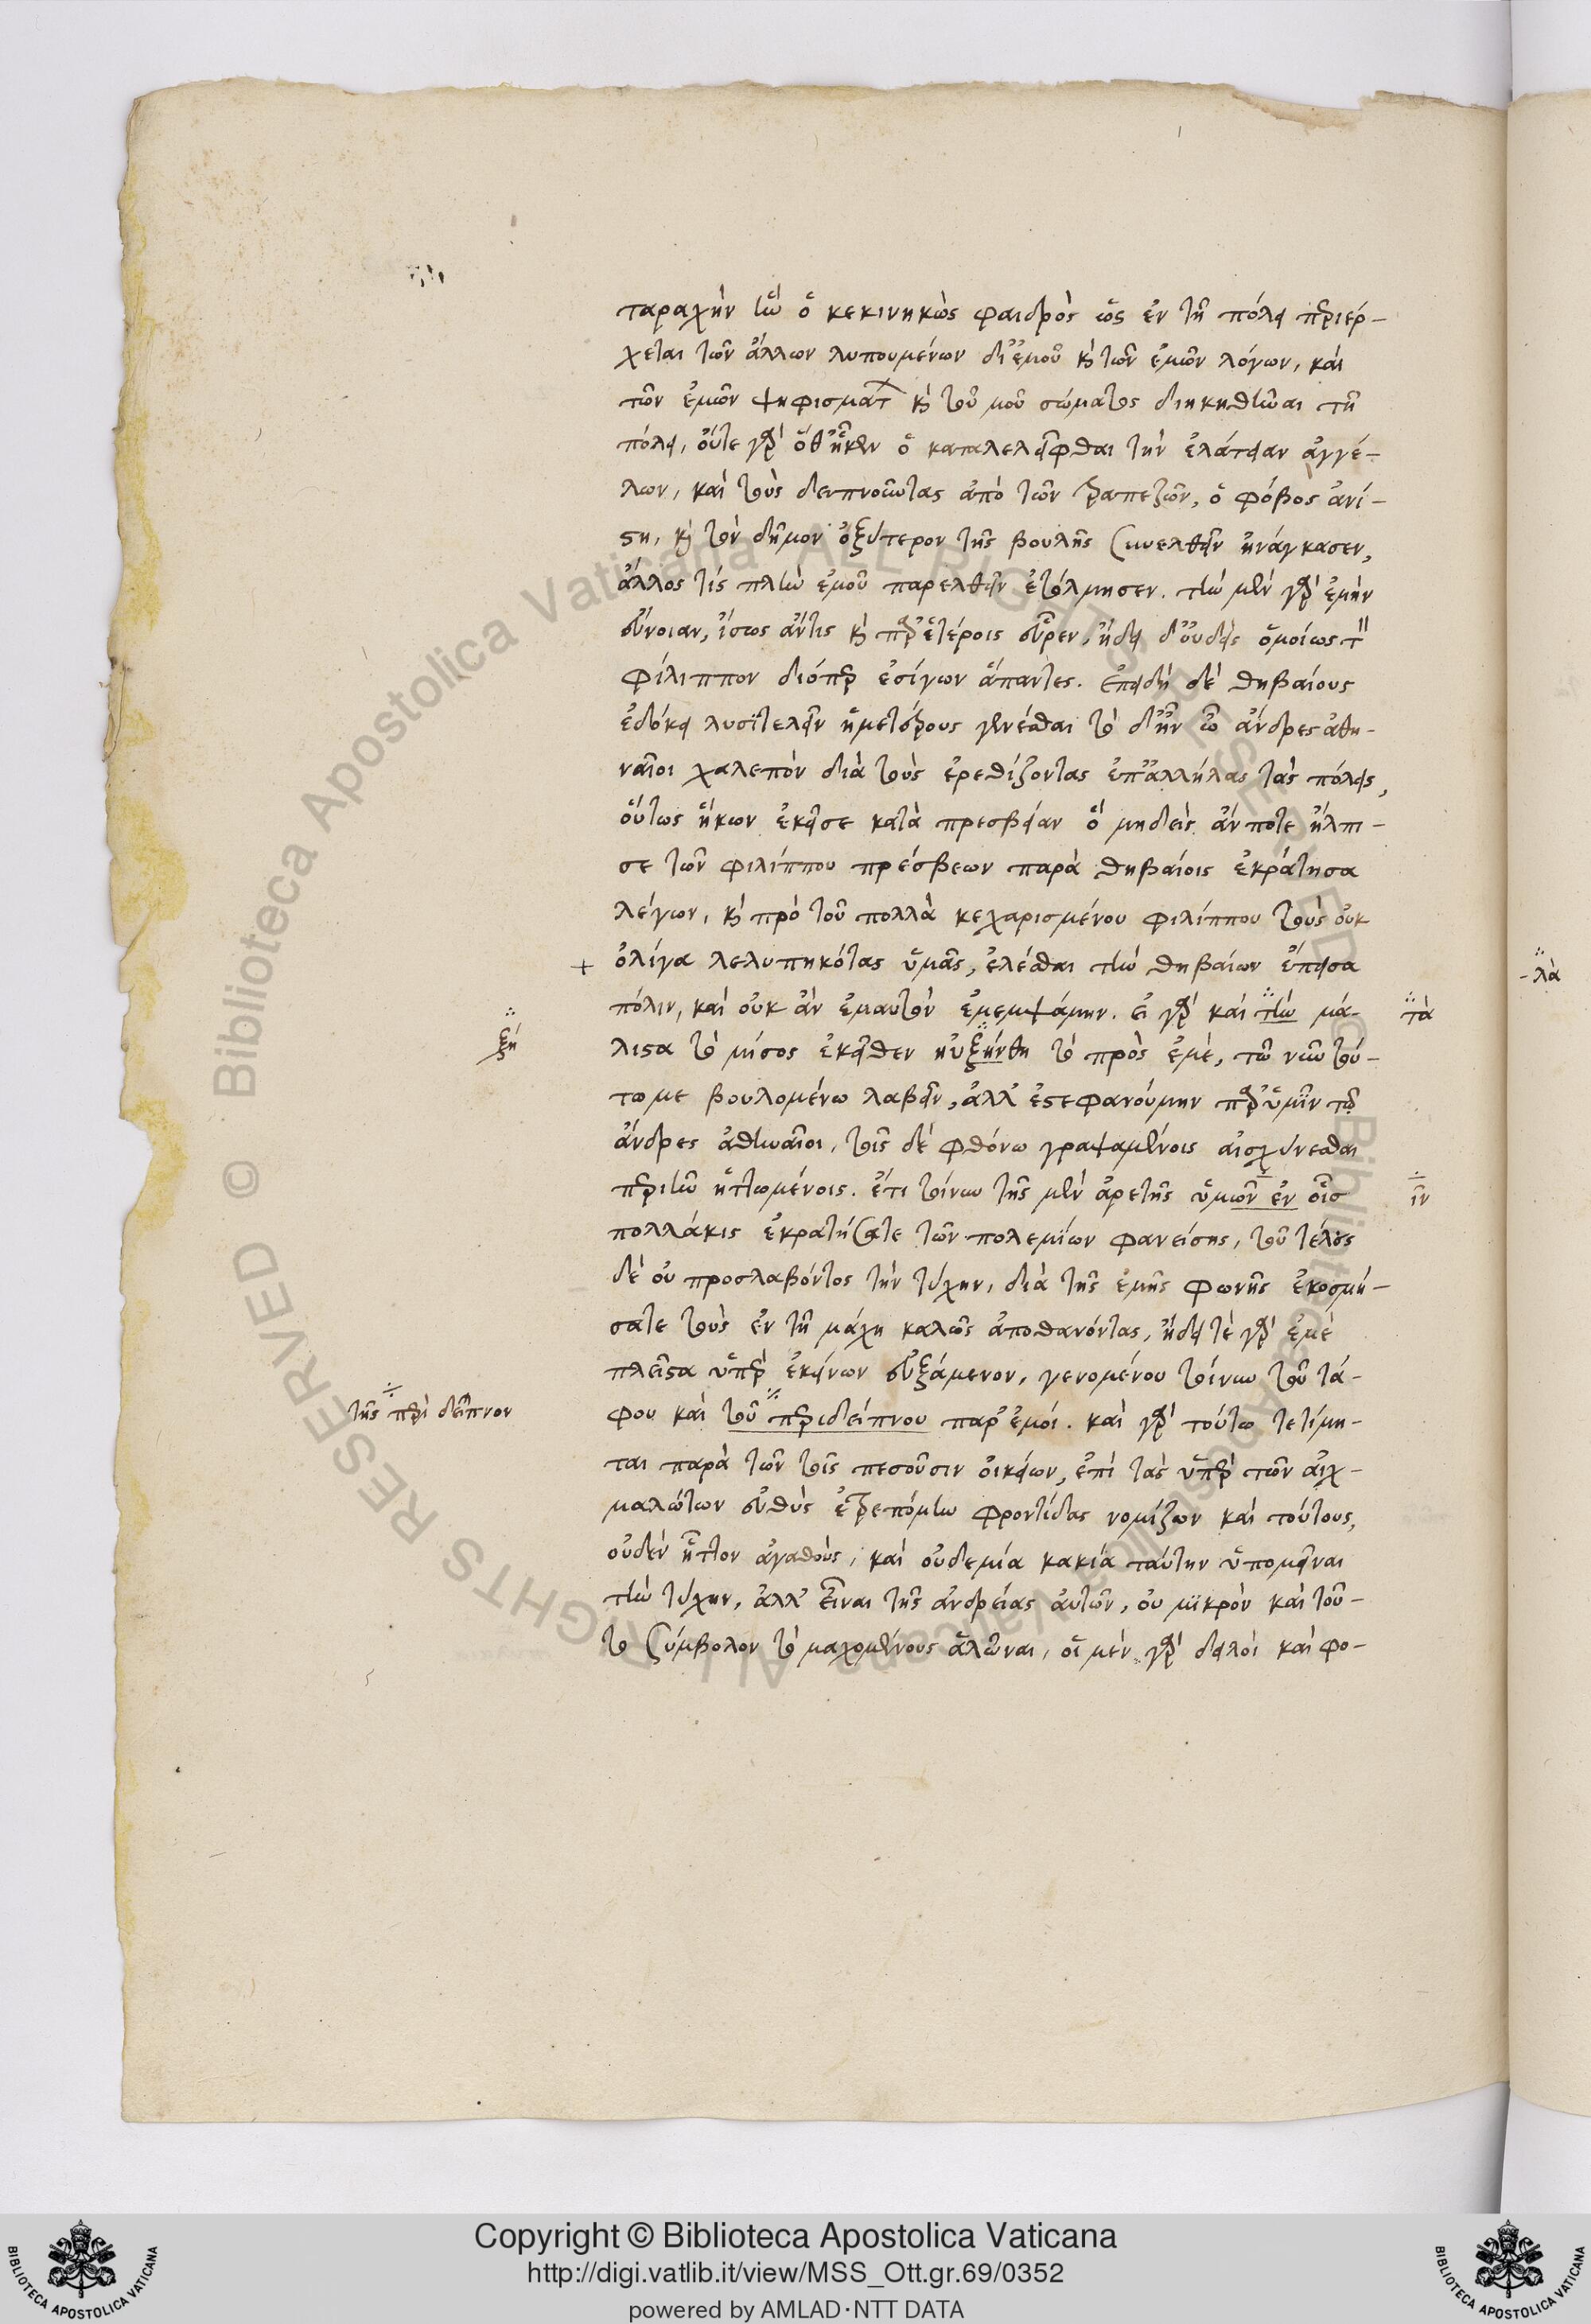 ταραχὴν ἣν ὁ κεκινηκὼς φαιδρὸς ὡς ἐν τῇ πόλει περιέρ-
χεται τῶν ἄλλων λυπουμένων δι' ἐμοῦ καὶ τῶν ἐμῶν λόγων, καὶ
τῶν ἐμῶν ψηφισμάτ καὶ τοῦ μοῦ σώματος
πόλει, οὔτε γὰρ ὅθ' ἧκεν ὁ κατειλεῖφθαι τὴν ἐλάτειαν ἀγγέ-
λων, καὶ τοὺς δειπνοῦντας ἀπὸ τῶν τραπεζῶν, ὁ φόβος ἀνί-
στη, καὶ τὸν δῆμον ὀξύτερον τῆς βουλῆς συνελθεῖν ἠνάγκασεν,
ἄλλος τίς πλὴν ἐμοῦ παρελθεῖν ἐτόλμησεν. τὴν μὲν γὰρ ἐμὴν
εὔνοιαν, ἴσως ἄν τις καὶ παρ' ἑτέροις εὗρεν, ᾔδει δ' οὐδεὶς ὁμοίως τ
φίλιππον διόπερ ἐσίγων ἅπαντες. ἐπειδὴ δὲ θηβαίους
ἐδόκει λυσιτελεῖν ἡμετέρους γενέσθαι τὸ δ' ἦν ὦ ἄνδρες ἀθη-
ναῖοι χαλεπὸν διὰ τοὺς ἐρεθίζοντας ἐπ' ἀλλήλας τὰς πόλεις,
οὕτως ἥκων ἐκεῖσε κατὰ πρεσβείαν ὃ μηδεὶς ἄν ποτε ἤλπι-
σε τῶν φιλίππου πρέσβεων παρὰ θηβαίοις ἐκράτησα
λέγων, καὶ πρὸ τοῦ πολλὰ κεχαρισμένου φιλίππου τοὺς οὐκ
+ ὀλίγα λελυπηκότας ὑμᾶς, ἑλέσθαι τὴν θηβαίων ἔπεισα
-λὰ
πόλιν, καὶ οὐκ ἂν ἐμαυτὸν ἐμεμψάμην. εἰ γὰρ καὶ τὴν μά-
τὰ
ξή
λιστα τὸ μῖσος ἐκεῖθεν ηὐξήνθη τὸ πρὸς ἐμὲ, τῶ νῶ τού-
τω με βουλομένω λαβεῖν, ἀλλ' ἐστεφανούμην παρ' ὑμῖν
ἄνδρες ἀθηναῖοι, τοῖς δὲ φθόνω γραψαμένοις αἰσχύνεσθαι
περιῆν ἡττωμένοις. ἔτι τοίνυν τῆς μὲν ἀρετῆς ὑμῶν ἐν οἷς
ῖν
πολλάκις ἐκρατήσατε τῶν πολεμίων φανείσης, τοῦ τέλους
δὲ οὐ προσλαβόντος τὴν τύχην, διὰ τῆς ἐμῆς φωνῆς ἐκοσμή-
σατε τοὺς ἐν τῇ μάχη καλῶς ἀποθανόντας, ᾔδειτε γὰρ ἐμὲ
πλεῖστα ὑπὲρ ἐκείνων εὐξάμενον, γενομένου τοίνυν τοῦ τά-
τῆς περὶ δεῖπνον
φου καὶ τοῦ περιδείπνου παρ' ἐμοί. καὶ γὰρ τούτω τετίμη-
ται παρὰ τῶν τοῖς πεσοῦσιν οἰκείων, ἐπὶ τὰς ὑπὲρ τῶν αἰχ-
μαλώτων εὐθὺς ἐτρεπόμην φροντίδας νομίζων καὶ τούτους,
οὐδὲν ἧττον ἀγαθοὺς, καὶ οὐδεμία κακία ταύτην ὑπομεῖναι
τὴν τύχην, ἀλλ' εἶναι τῆς ἀνδρείας αὐτῶν, οὐ μικρὸν καὶ τοῦ-
το σύμβολον τὸ μαχομένους ἁλῶναι, οἱ μὲν γὰρ δειλοὶ καὶ φο-
Copyright © Biblioteca Apostolica Vaticana
http://digi.vatlib.it/view/MSS_Ott.gr.69/0352
powered by AMLAD·NTT DATA
BIBLIOTECA APOSTOLICA VATICANA
BIBLIOTECA APOSTOLICA VATICANA
© Biblioteca Apostolica Vaticana ALL RIGHTS RESERVED
© Biblioteca Apostolica Vaticana ALL RIGHTS RESERVED